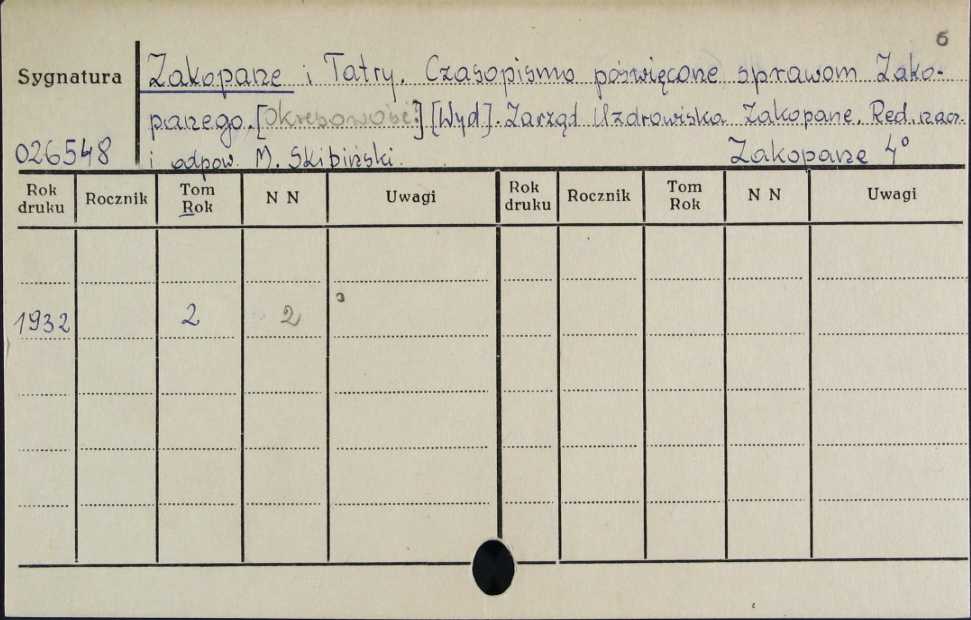 6
Sygnatura
Zakopane i Tatry. Czasopismo poświęcone sprawom Zako-
panego. [Okresowość] [Wyd]. Zarząd Uzdrowiska Zakopane. Red. nacz.
026548
i odpow. M. Skibiński. Zakopane 4°
Rok druku Rocznik Tom Rok N N Uwagi Rok druku Rocznik Tom Rok N N Uwagi
1932 2 2